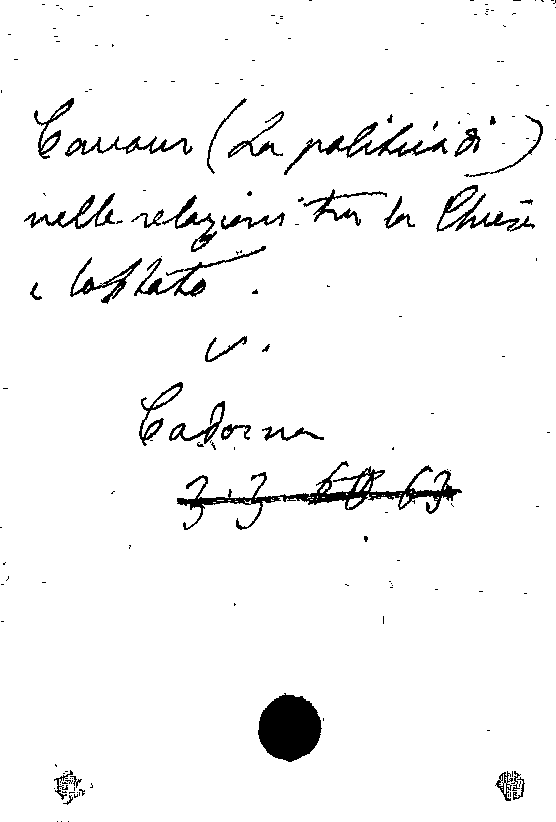 Cavour (La politica di)
nelle relazioni tra la Chiesa
e lo Stato.
v.
Cadorna
3. 3 60 63